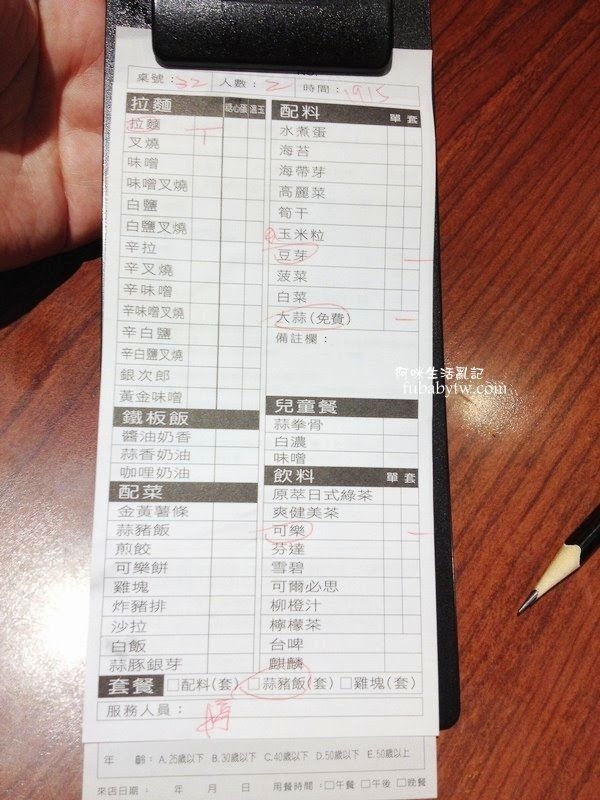 桌號：32 人數：2 時間：1915
拉麵 糖心蛋 溫玉
拉麵 丅
叉燒
味噌
味噌叉燒
白鹽
白鹽叉燒
辛拉
辛叉燒
辛味噌
辛味噌叉燒
辛白鹽
辛白鹽叉燒
銀次郎
黃金味噌
鐵板飯
醬油奶香
蒜香奶油
咖哩奶油
配菜
金黃薯條
蒜豬飯
煎餃
可樂餅
雞塊
炸豬排
沙拉
白飯
蒜豚銀芽
配料 單 套
水煮蛋
海苔
海帶芽
高麗菜
筍干
玉米粒
豆芽 一
菠菜
白菜
大蒜(免費) 一
備註欄：
阿咪生活亂記
fubabytw.com
兒童餐
蒜拳骨
白濃
味噌
飲料 單 套
原萃日式綠茶
爽健美茶
可樂 一
芬達
雪碧
可爾必思
柳橙汁
檸檬茶
台啤
麒麟
套餐 □配料(套) □蒜豬飯(套) □雞塊(套)
服務人員：
年 齡：A.25歲以下 B.30歲以下 C.40歲以下 D.50歲以下 E.50歲以上
來店日期： 年 月 日 用餐時間：□午餐 □午後 □晚餐